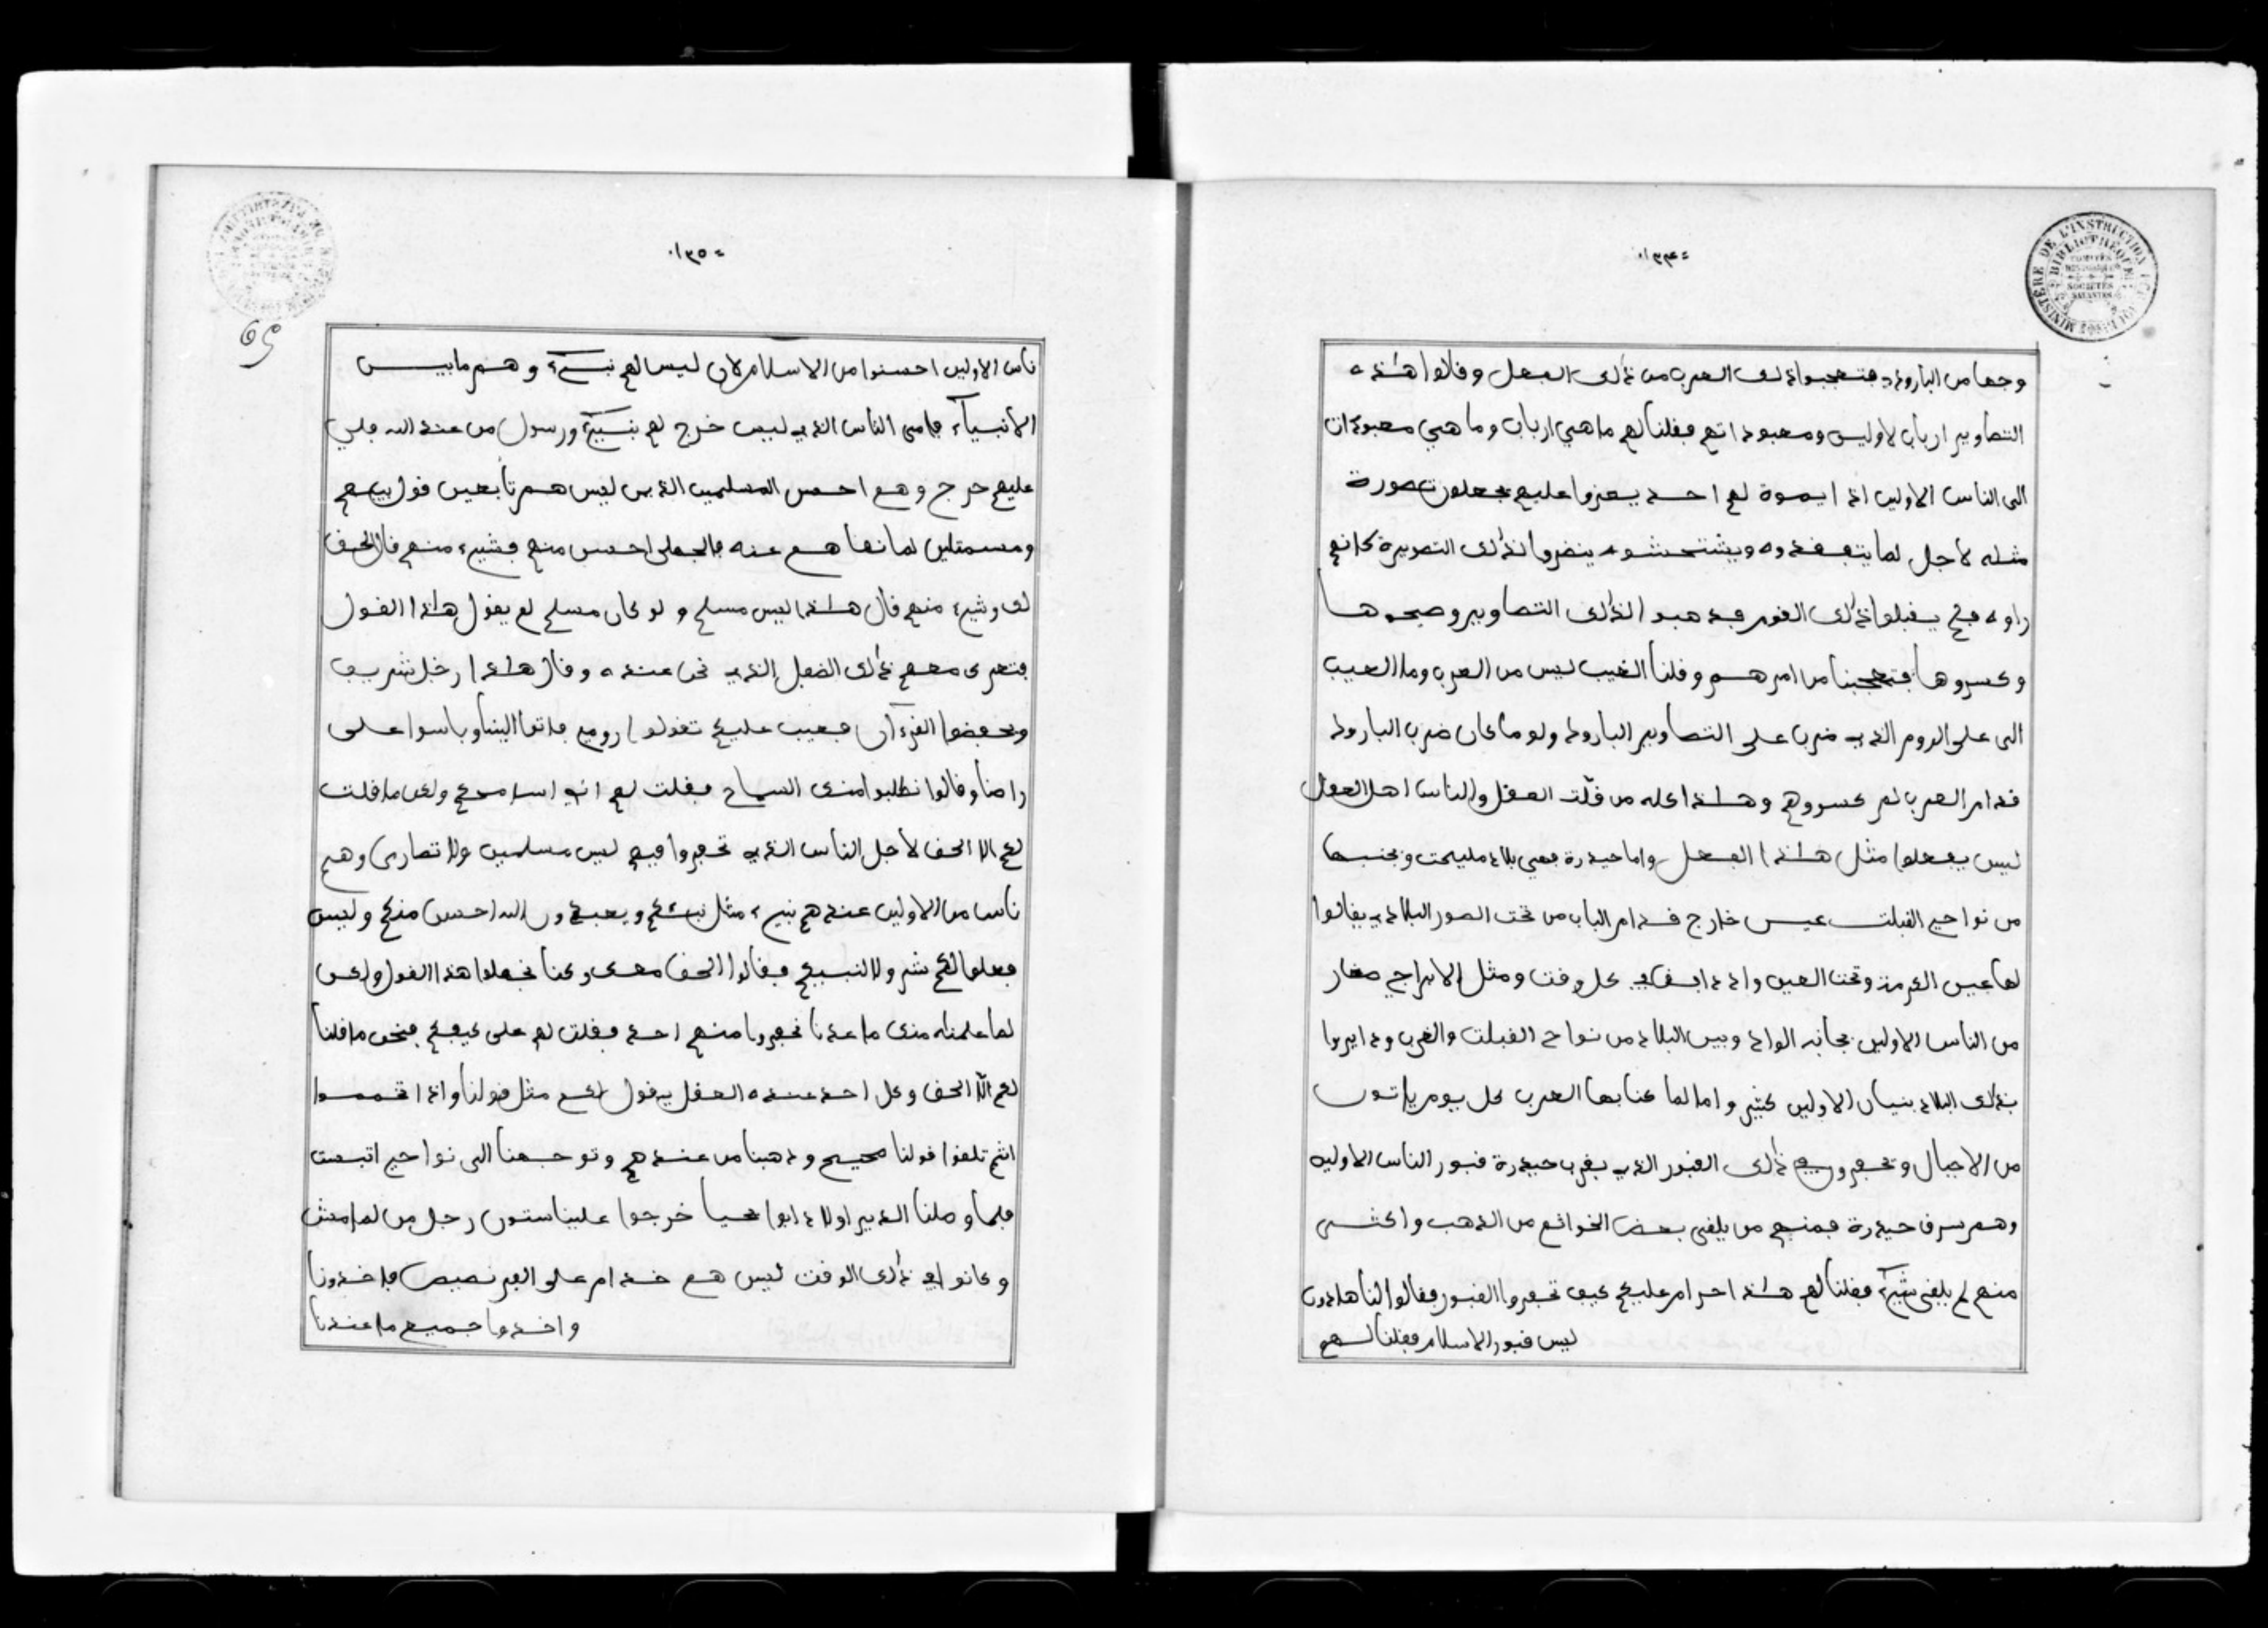 ١٣٤
وجها من البارود فتعجبوا ذلك العرب من ذلك الفعل وقالوا هذه
التصاوير ارباب لاولين ومعبوداتهم فقلنا لهم ما هي ارباب وما هي معبودات
الى الناس الاولين اذا يموة لهم احد يعزوا عليهم يجعلون صورة
مثله لاجل لما يتفقدوه ويشتحشوه ينضروا لذلك التصويرة كانهم
راوه فلم يقبلوا ذلك القوم فذهبوا لذلك التصاوير وصحوها
وكسروها فتعجبنا من امرهم وقلنا الغيب ليس من العرب وما العيب
الى على الروم الذي ضرب على التصاوير البارود ولو ما كان ضرب البارود
قدام العرب لم كسروهم وهذا كله من قلت العقل والناس اهل العقل
ليس يفعلوا مثل هذا الفعل واما حيدرة فهي بلاد مليحت وبجنبها
من نواحي القبلت عين خارج قدام الباب من تحت الصور البلاد يقالوا
لها عين الكرمة وتحت العين واد دايف كل وقت ومثل الابراج صغار
من الناس الاولين بجانب الواد وبين البلاد من نواح القبلت والغرب ودايروا
بذلك البلاد بنيان الاولين كثير واما لما كنا بها العرب كل يوم ياتون
من الاجبال وتحفرو في ذلك القبور الذي بقرب حيدرة قبور الناس الاولين
وهم شرق حيدرة فمنهم من يلقى بعض الخواتم من الذهب واكثرى
منهم لم يلقى شيء فقلنا لهم هذا حرام عليكم كيف تحفروا القبور فقالوا لنا هادون
ليس قبور الاسلام فقلنا لهم
١٣٥
ناس الاولين احسنوا من الاسلام لان ليس لهم نبيء وهم ما بين
الانبياء فامى الناس الذي ليس خرج لهم نبيء ورسول من عند الله فليس
عليهم حرج وهم احسن المسلمين الذين ليس هم تابعين قول نبيهم
ومسمتلين لما نهاهم عنه فالجهلى احسن منهم فشيء منهم قال الحق
لك وشيء منهم قال هذا ليس مسلم ولو كان مسلم لم يقول هذا القول
فتعرى معهم ذلك الفضل الذي نحن عنده وقال هذا رجل شريف
وبحفضوا القرءان فعيب عليكم تقولوا رومي فاتوا الينا وباسوا على
راصنا وقالوا نطلبوا منك السماح فقلت لهم اني اسامحكم ولكن ما قلت
لكم الا الحق لاجل الناس الذي تحفروا فيهم ليس مسلمين ولا نصارى وهم
ناس من الاولين عندهم نبيء مثل نبيكم ويعبدون الله احسن منكم وليس
فعلوا لكم شر ولا لنبيكم فقالوا الحق معك وكنا نجهلوا هذا القول ولكن
لما علمناه منك ما عدنا نحفروا منهم احد فقلت لهم على كيفكم فنحن ما قلنا
لكم الا الحق وكل احد عنده العقل يقول لكم مثل قولنا واذا تخمموا
انتم تلقوا قولنا صحيح وذهبنا من عندهم وتوجهنا الى نواحي اتبست
فلما وصلنا الدير اولاد ابوا يحيا خرجوا علينا ستون رجل من لهامش
وكانوا في ذلك الوقت ليس هم خدام على القرنصيص فاخذونا
واخذوا جميع ما عندنا
MINISTÈRE DE L'INSTRUCTION
BIBLIOTHÈQUE
SOCIÉTÉS
SAVANTES